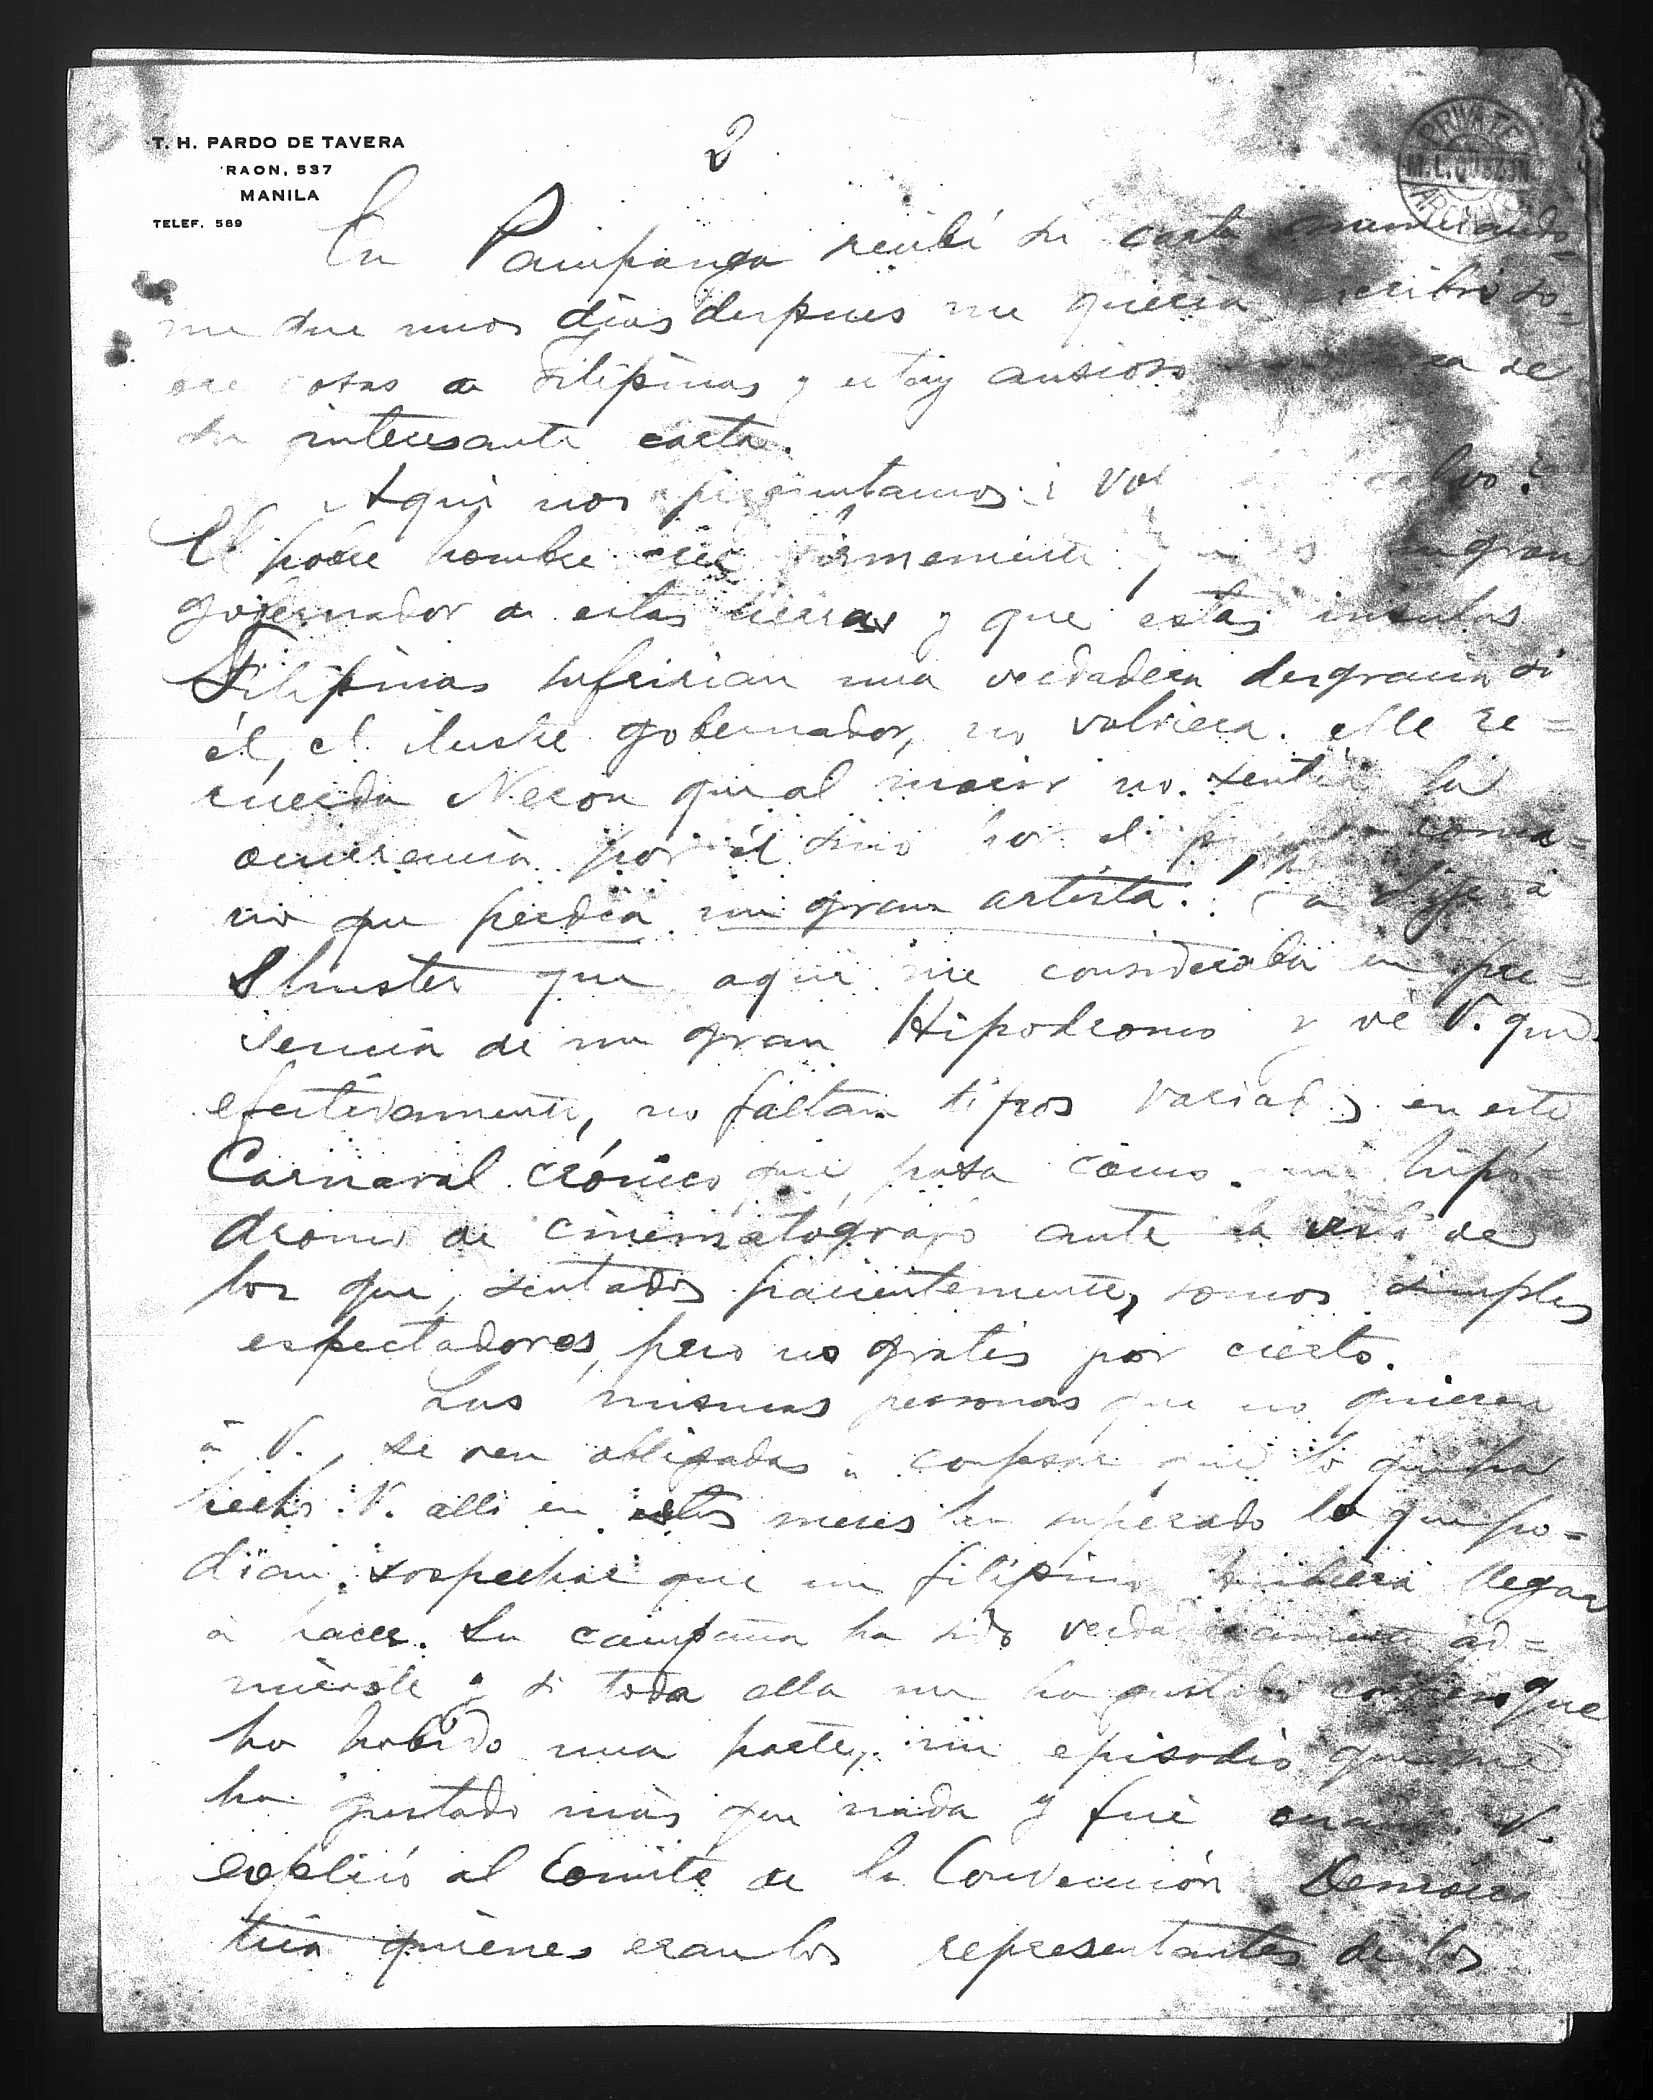 T. H. PARDO DE TAVERA
RAON, 537
MANILA
TELEF. 589
2
PRIVATE
En Pampanga recibí su carta anunciando=
me que unos días despues me queria escribir so=
bre cosas de Filipinas y estoy ansioso
su interesante carta.
Aqui nos preguntamos ¿
El pobre hombre cree firmemente gran
gobernador de estas tierras y que estas insulas
Filipinas sufririan una verdadera desgracia si
él, el ilustre gobernador, no volviera. Me re=
cuerda Neron que al morir no sentia la
ocurrencia por él sino por el roma=
no que perdia un gran artista. Ya dije á
Shuster que aqui me consideraba en pre=
sencia de un gran Hipodromo y vé V. que
efectivamente, no faltan tipos variados en este
Carnaval crónico que pasa como un hipó=
dromo de cinematógrafo ante la vista de
los que, sentados pacientemente, somos simples
espectadores, pero no gratis por cierto.
Las mismas personas que no quieren
á V., se ven obligadas á confesar que lo que ha
hecho V. alli en estos meses ha superado lo que po=
dian sospechar que un filipino hubiera llegar
á hacer. Su campaña ha sido verdaderamente ad=
mirable y si toda ella me ha gustado confieso que
ha habido una parte, un episodio que me
ha gustado más que nada y fué cuando V.
explicó al Comité de la Convención Democrá=
tica quiénes eran los representantes de los